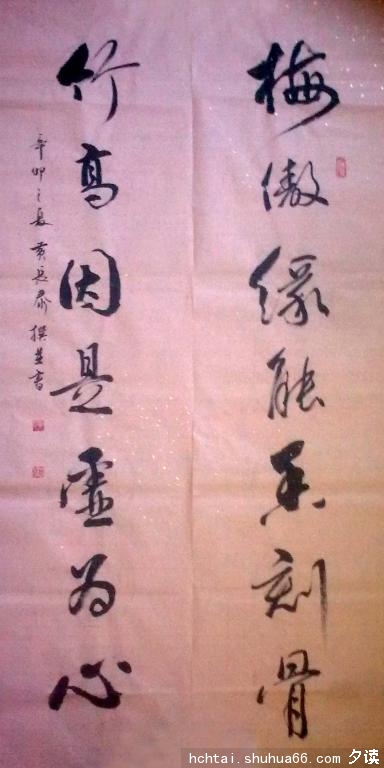 梅傲缘能香刻骨
竹高因是虚为心
辛卯之夏 黄长春 撰并书
hchtai.shuhua66.com
夕读